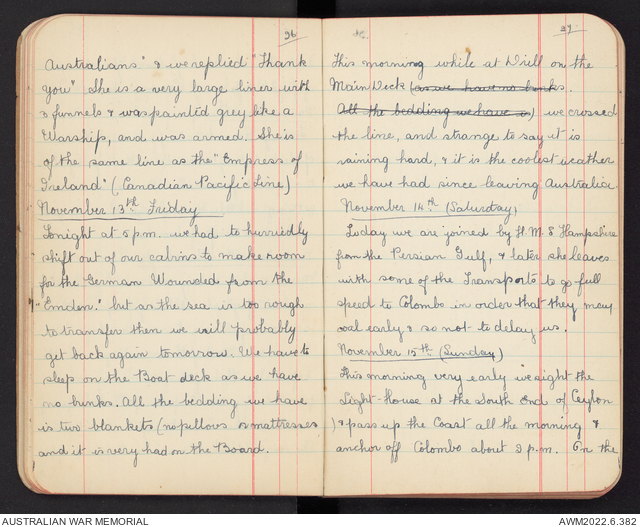 26
Australians" & we replied "Thank
you" She is a very large liner with
3 funnels & was painted grey like a
Warship, and was armed. She is
of the same line as the "Empress of
Ireland" (Canadian Pacific Line)
November 13th Friday
Tonight at 5 p.m. we had to hurriedly
shift out of our cabins to make room
for the German Wounded from the
"Emden." but as the sea is too rough
to transfer then we will probably
get back again tomorrow. We have to
sleep on the Boat deck as we have
no bunks. All the bedding we have
is two blankets (no pillows or mattresses
and it is very hard on the Board.
27
This morning while at Drill on the
Main Deck (as we have no bunks.
All the bedding we have is) we crossed
the line, and strange to say it is
raining hard, & it is the coolest weather
we have had since leaving Australia.
November 14th (Saturday)
Today we are joined by H.M.S Hampshire
from the Persian Gulf, & later she leaves
with some of the Transports to go full
speed to Colombo in order that they may
coal early & so not to delay us.
November 15th (Sunday)
This morning very early we sight the
Light-House at the South End of Ceylon
) & pass up the Coast all the morning &
anchor off Colombo about 2 p.m. On the
AUSTRALIAN WAR MEMORIAL
AWM2022.6.382